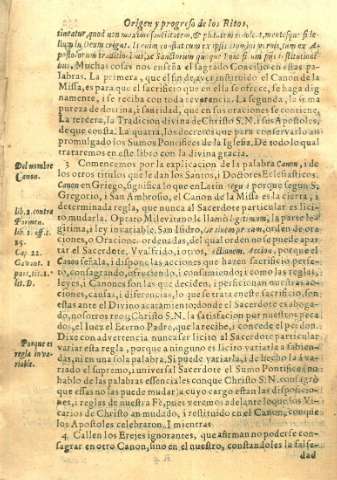 Origen y progreso de los Ritos,
Muchas cosas nos enseña el sagrado Concilio en estas pa-
labras. La primera, que el fin de aver instituido el Canon de la
Missa, es para que el sacrificio que en ella se ofrece, se haga dig-
namente, i se reciba con toda reverencia. La segunda, la suma
pureza de dotrina, i santidad, que en sus oraciones se contiene,
La tercera, la Tradicion divina de Christo S.N. i sus Apostoles,
de que consta. La quarta, los decretos que para conservarlo an
promulgado los Sumos Pontifices de la Iglesia. De todo lo qual
trataremos en este libro con la divina gracia.
Del nombre
Canon.
3 Comencemos por la explicacion de la palabra Canon, i de
los otros titulos que le dan los Santos, i Doctores Eclesiasticos.
Canon en Griego, significa lo que en Latin porque segun S.
Gregorio, i San Ambrosio, el Canon de la Missa es la cierta, i
determinada regla, que nunca al Sacerdote particular es lici-
lib. 2. contra
to mudarla. Optato Milevitano le llamò legitimum, la parte le-
gitima, i ley invariable. San Isidro, de oracio-
nes, o Oraciones ordenadas, del qual orden no se puede apar-
25.
Cap. 22.
tar el Sacerdote. otros, actionem, Accion, porque el
Gavant. 1
Canon señala, i dispone las acciones que hazen sacrificio perfe-
part. tit. 1.
to, consagrando, ofreciendo, i consumiendo; i como las reglas,
lit. D.
leyes, i Canones son las que deciden, i perficionan nuestras ac-
ciones, causas, i diferencias, lo que se trata en este sacrificio, son
estas ante el Divino acatamiento donde el Sacerdote es aboga-
do, nosotros reos; Christo S.N. la satisfacion por nuestros peca-
dos, el Iuez el Eterno Padre, que la recibe, i concede el perdon.
Dixe con advertencia nunca ser licito al Sacerdote particular
Porque es
variar esta regla, porque a ninguno es licito variarla a sabien-
regla inva-
das, ni en una sola palabra. Si puede variarla, i de hecho la à va-
riable.
riado el supremo, i universal Sacerdote el Sumo Pontifice (no
hablo de las palabras essenciales con que Christo S.N. consagrò
que essas no las puede mudar) a cuyo cargo estan las disposicio-
nes, i reglas de nuestra Fè, pues veremos adelante lo que los Vi-
carios de Christo an mudado, i restituido en el Canon, con que
los Apostoles celebraron. I mientras
4. Callen los Erejes ignorantes, que afirman no poderse con-
sagrar en otro Canon, sino en el nuestro, constandoles la false-
dad